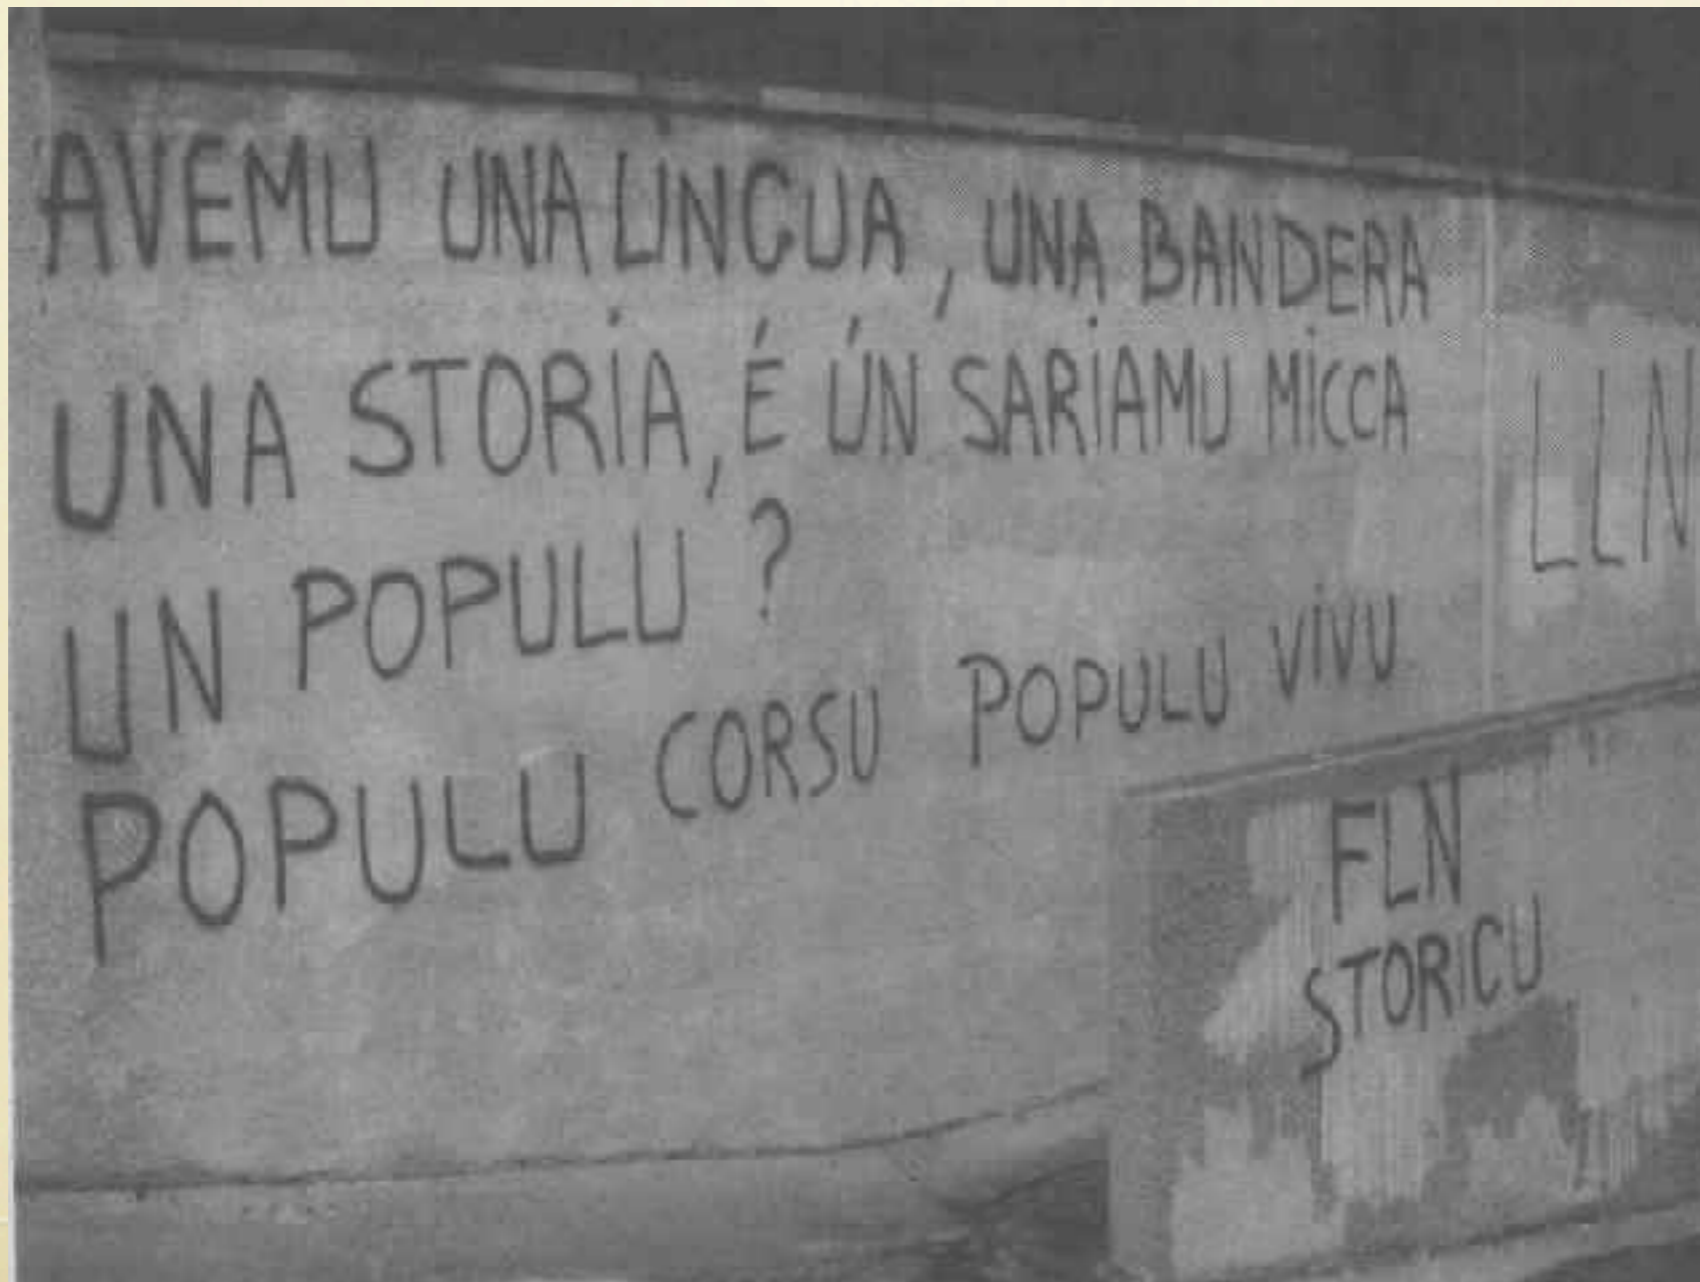 AVEMU UNA LINGUA, UNA BANDERA
UNA STORIA, É ÚN SARIAMU MICCA
UN POPULU ?
POPULU CORSU POPULU VIVU
LLN
FLN
STORICU